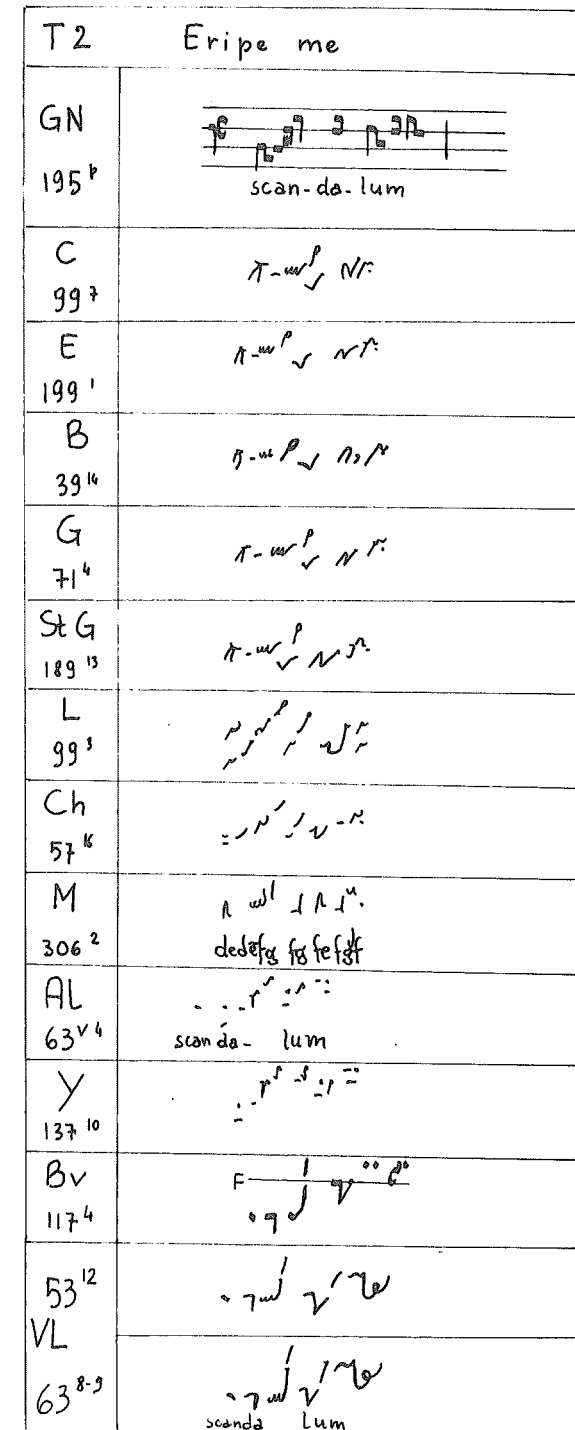 T2 Eripe me
GN
195 p
scan-da-lum
C
99 7
E
199 1
B
39 14
G
71 4
St G
189 13
L
99 3
Ch
57 16
M
306 2
AL
63 v 4
scanda- lum
Y
137 10
Bv
117 4
F
53 12
VL
63 8-9
scanda lum